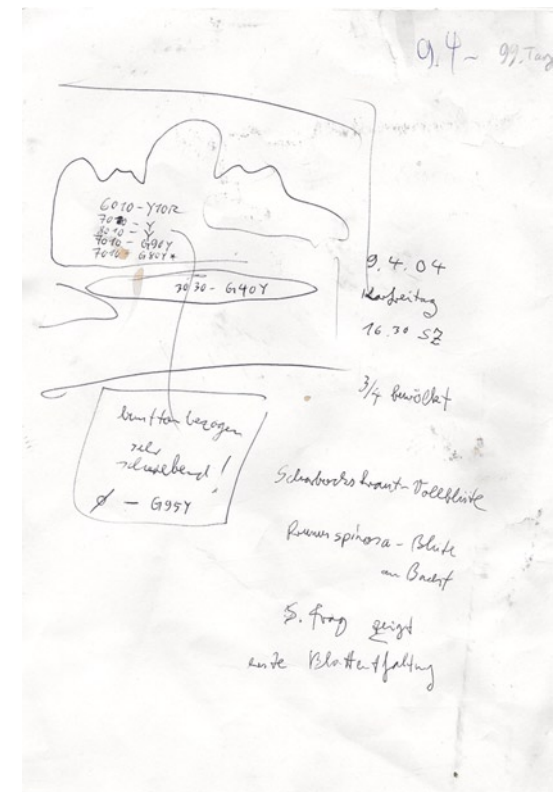 9.4 - 99. Tag
6010-Y10R
7010 - Y
8010 - Y
7010 - G90Y
7010 - G80Y*
3030 - G40Y
9.4.04
Karfreitag
16.30 SZ
3/4 bewölkt
bunttonbezogen
sehr
schwebend!
Ø - G95Y
Scharbockskraut-Vollblüte
Prunus spinosa - Blüte
S. frag zeigt
erste Blattentfaltung